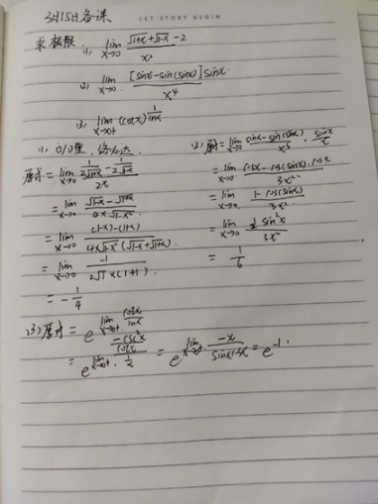 3月15日备课
SET STORY BEGIN
求极限: (1) lim x→0 (√(1+x)+√(1-x)-2)/x²
(2) lim x→0 [sinx-sin(sinx)]sinx / x⁴
(3) lim x→0+ (cotx)^(1/lnx)
(1) 0/0型, 洛必达.
原式=lim x→0 (1/(2√(1+x)) - 1/(2√(1-x)))/2x
=lim x→0 (√(1-x)-√(1+x))/(4x√(1-x²))
=lim x→0 ((1-x)-(1+x))/(4x√(1-x²)(√(1-x)+√(1+x)))
=lim x→0 -1/(2√1×(1+1))
=-1/4
(2) 原=lim x→0 (sinx-sin(sinx))/x³ · sinx/x
=lim x→0 (cosx-cos(sinx)·cosx)/3x²
=lim x→0 (1-cos(sinx))/3x²
=lim x→0 ½sin²x/3x²
=1/6
(3) 原式=e^(lim x→0+ lncotx/lnx)
=e^(lim x→0+ (-csc²x/cotx)/(1/x)) = e^(lim x→0+ -x/(sinxcosx)) = e^-1.